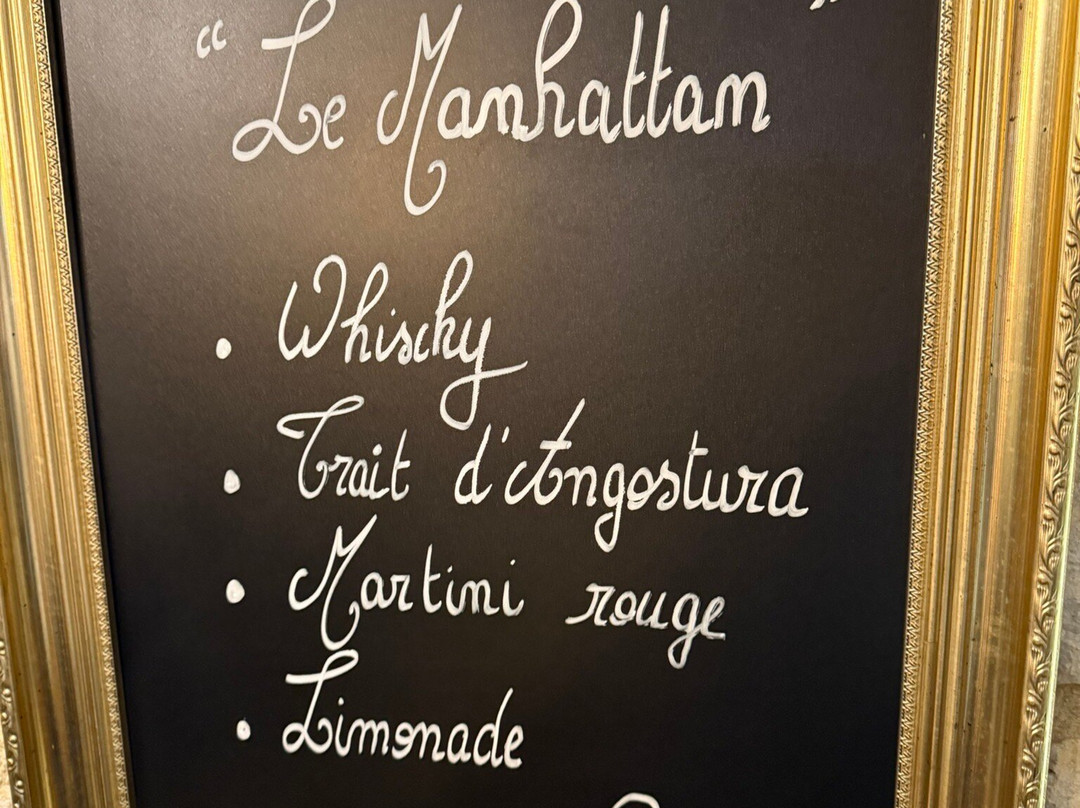 “ Le Manhattan ”
• Whischy
• Trait d'Angostura
• Martini rouge
• Limonade